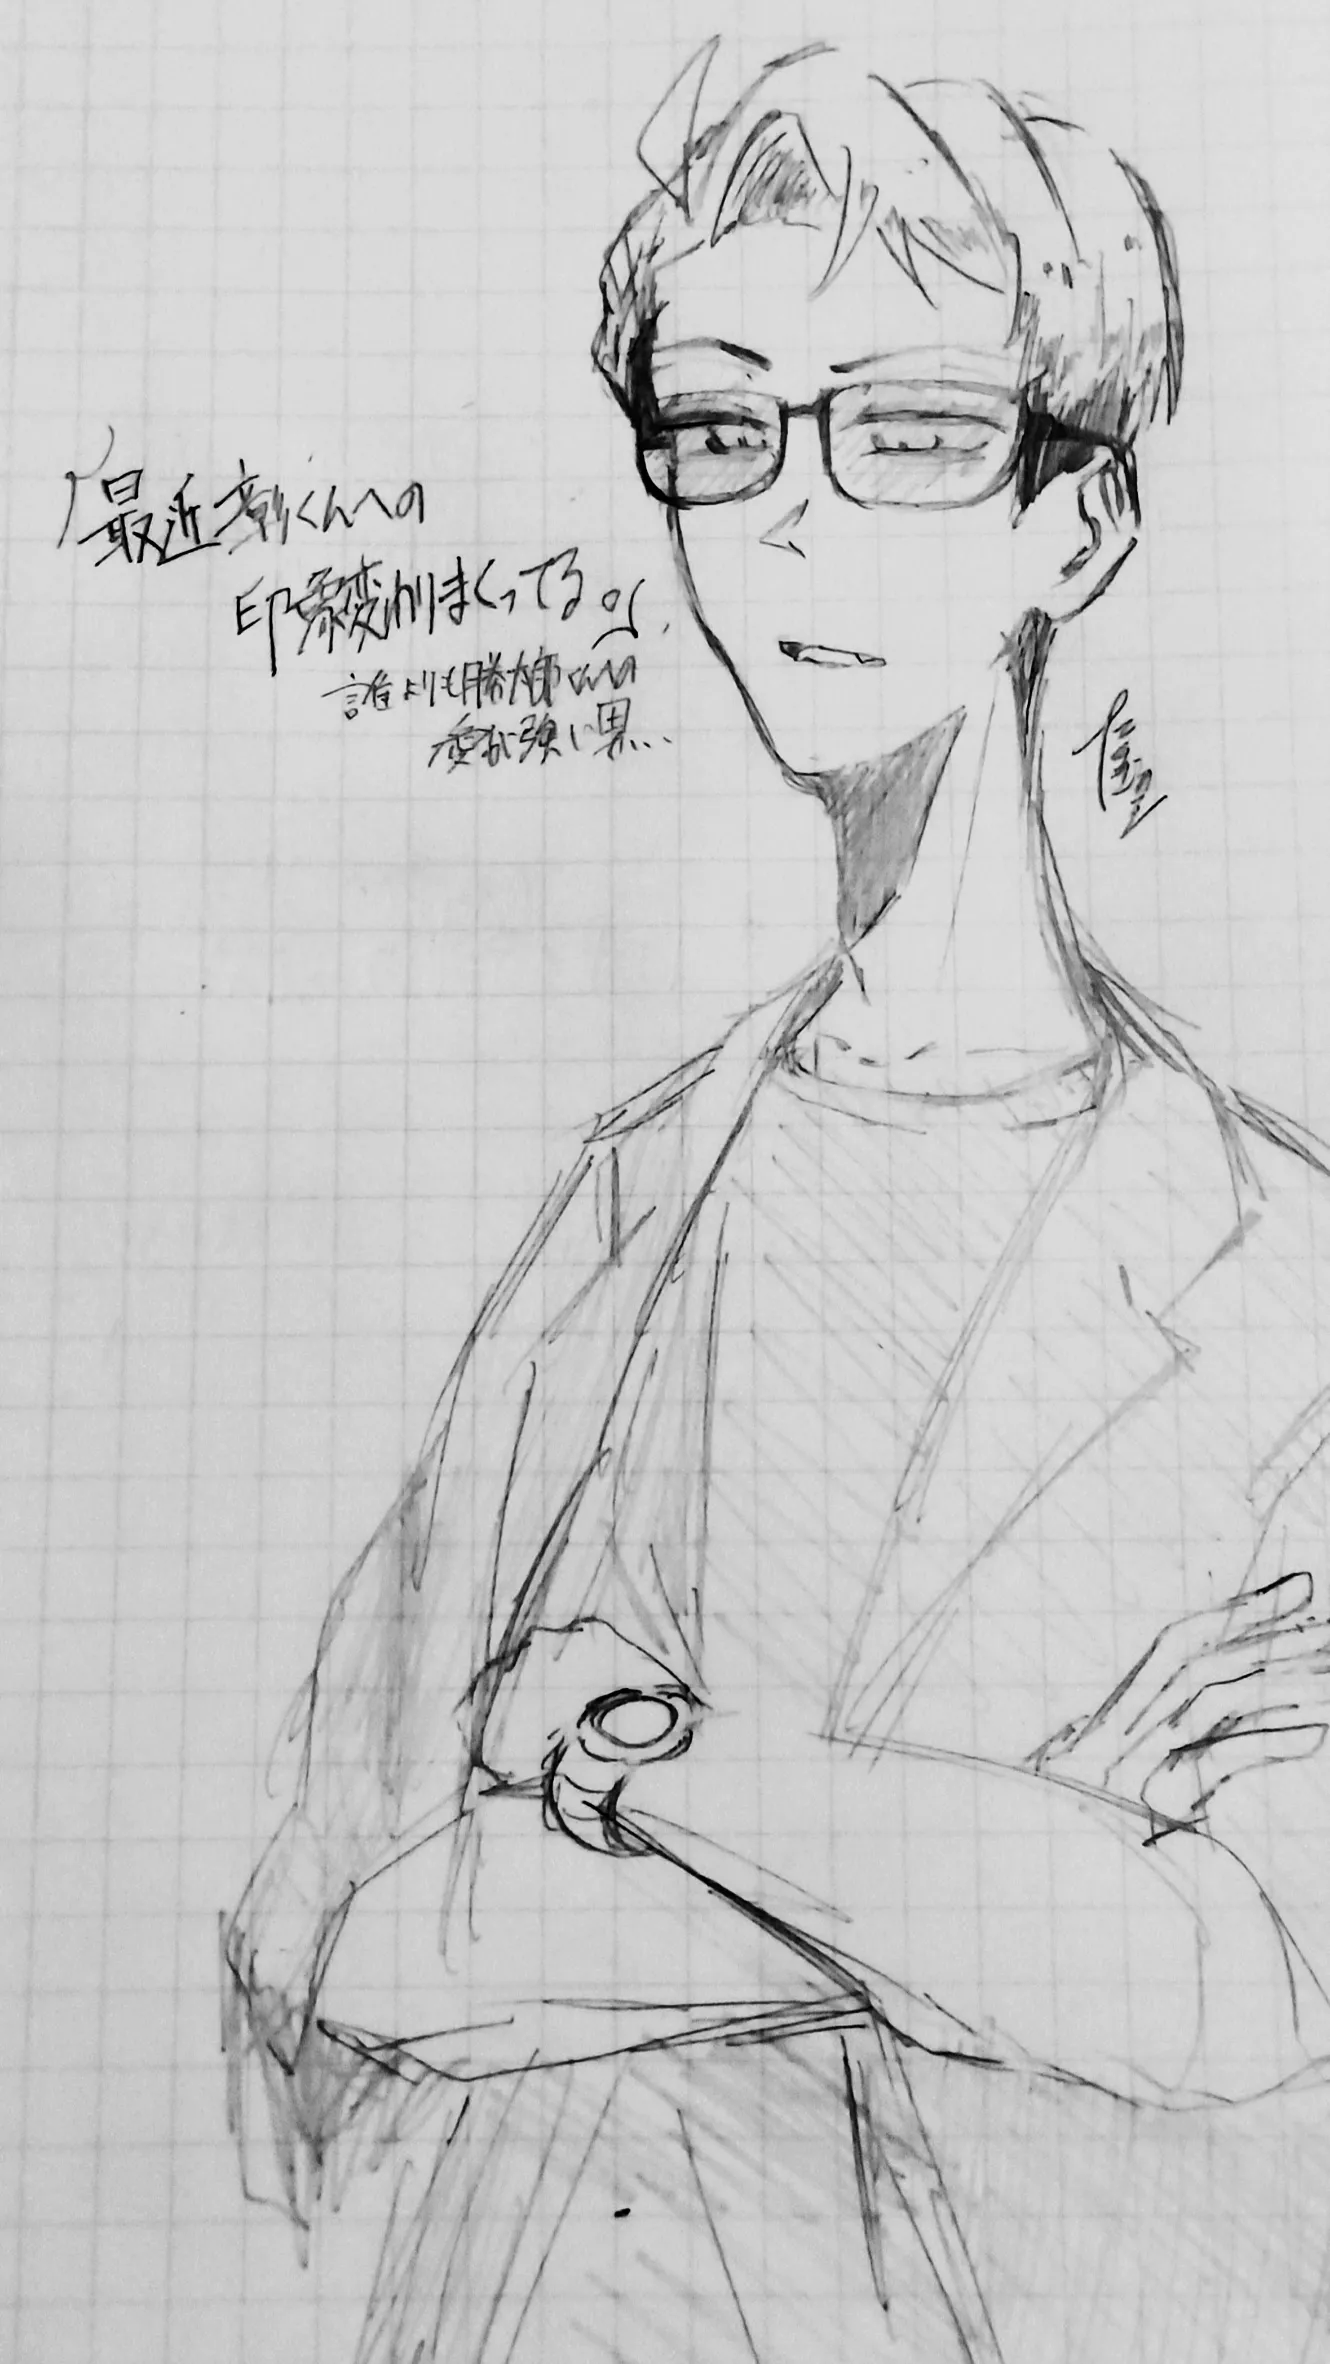 「最近彰くんへの
印象変わりまくってる。」
誰よりも勝太郎くんへの
愛が強い男…